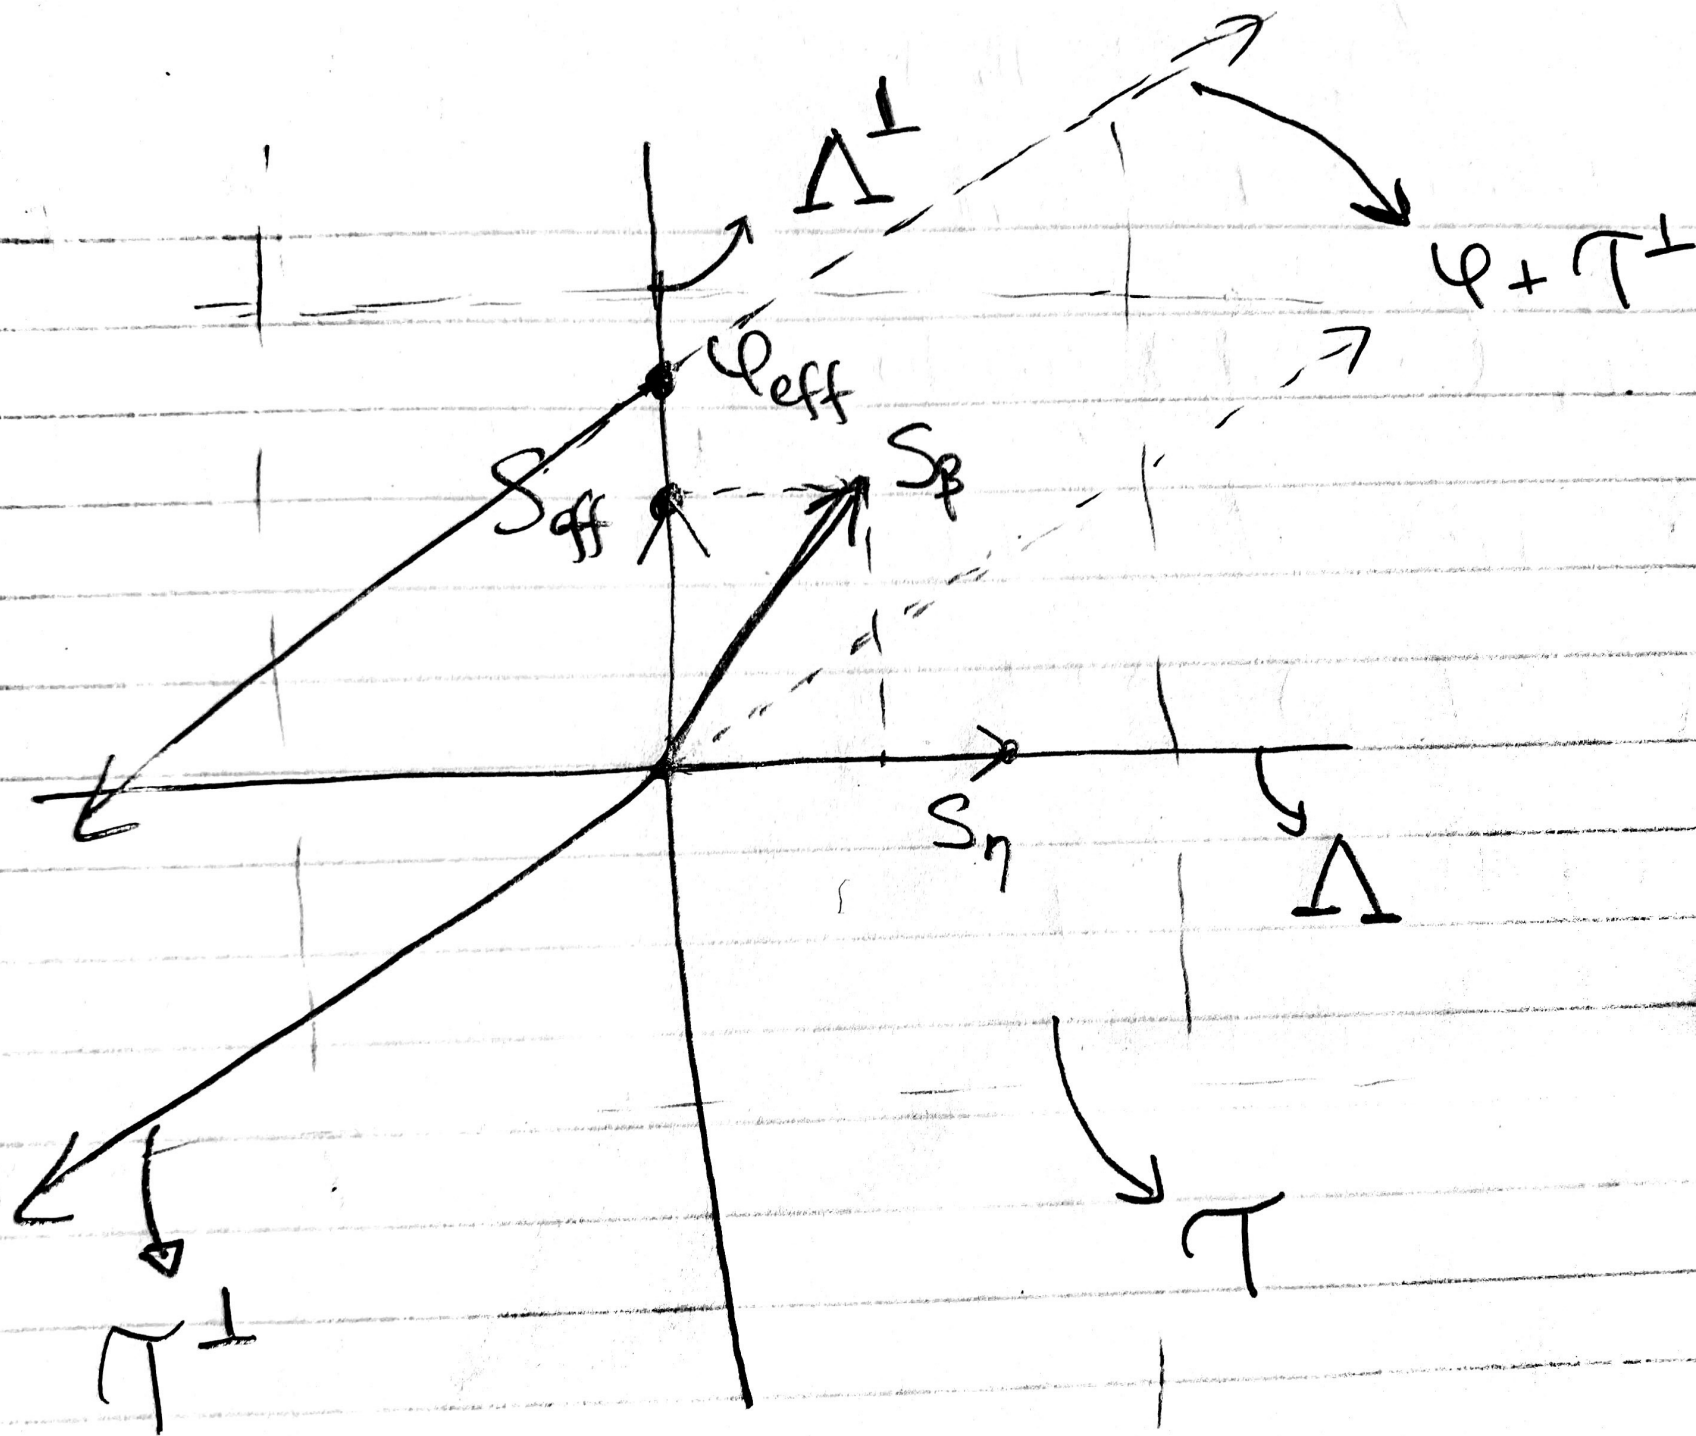 Λ⊥
φ + T⊥
φeff
Seff
Sβ
Sη
Λ
T
T⊥